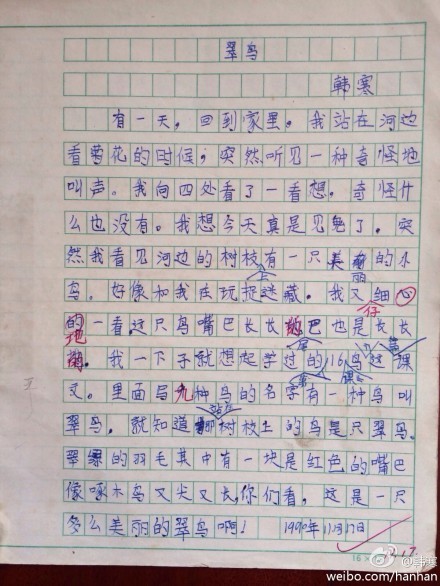 翠鸟
韩寒
有一天，回到家里。我站在河边
看菊花的时候，突然听见一种奇怪地
叫声。我向四处看了一看想。奇怪什
么也没有。我想今天真是见鬼了。突
然我看见河边的树枝上有一只美丽的小
鸟。好像和我在玩捉迷藏。我又仔细
的一看这只鸟嘴巴长长尾巴也是长长
我一下子就想起学过的第16课鸟这课
文。里面写九种鸟的名字有一种鸟叫
翠鸟。就知道站在那树枝上的鸟是只翠鸟。
翠绿的羽毛其中有一块是红色的嘴巴
像啄木鸟又尖又长,你们看,这是一只
多么美丽的翠鸟啊! 1990年11月17日
11.17
16×
@韩寒
weibo.com/hanhan